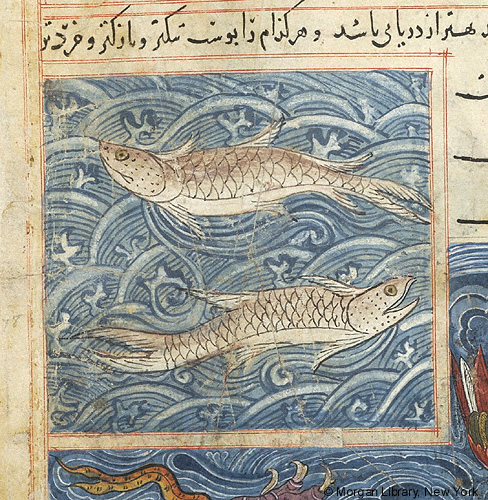 هتر از دریائی باشد و هر کدام را پوست تنکتر و نازکتر و خردتر
© Morgan Library, New York